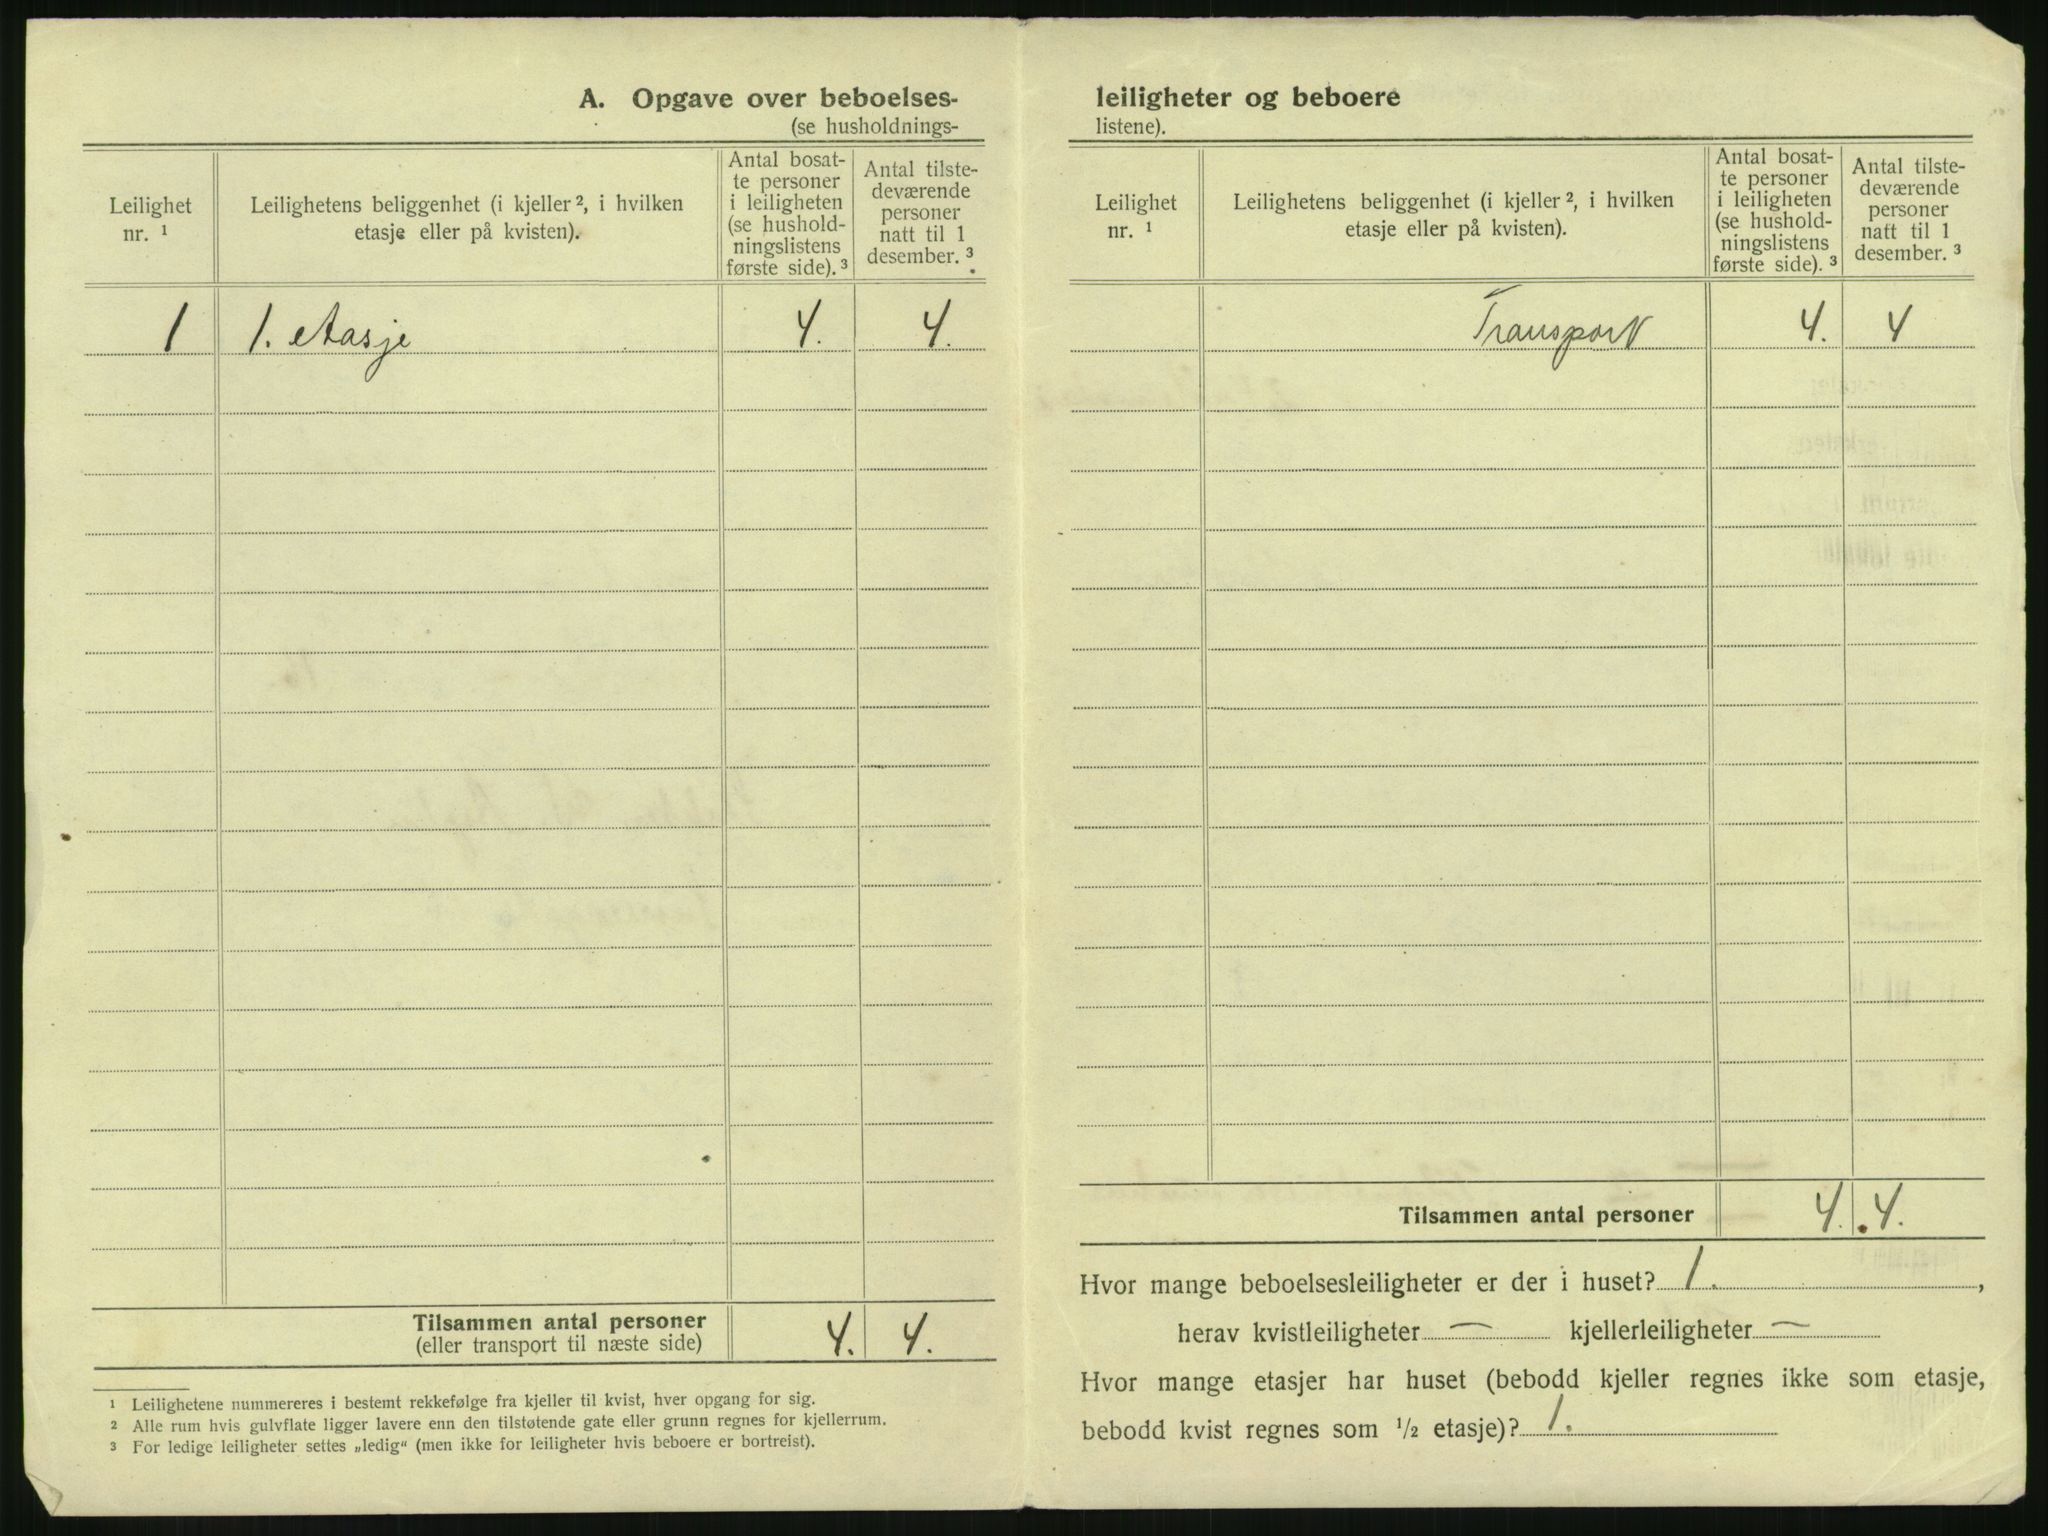 A. Opgave over beboelses-
(se husholdnings-
Leilighet
nr. ¹
Leilighetens beliggenhet (i kjeller ², i hvilken
etasje eller på kvisten).
Antal bosat-
te personer
i leiligheten
(se hushold-
ningslistens
første side). ³
Antal tilste-
deværende
personer
natt til 1
desember. ³
1 1. etasje 4. 4.
Tilsammen antal personer
(eller transport til næste side) 4. 4.
¹ Leilighetene nummereres i bestemt rekkefølge fra kjeller til kvist, hver opgang for sig.
² Alle rum hvis gulvflate ligger lavere enn den tilstøtende gate eller grunn regnes for kjellerrum.
³ For ledige leiligheter settes „ledig“ (men ikke for leiligheter hvis beboere er bortreist).
leiligheter og beboere
listene).
Leilighet
nr. ¹
Leilighetens beliggenhet (i kjeller ², i hvilken
etasje eller på kvisten).
Antal bosat-
te personer
i leiligheten
(se hushold-
ningslistens
første side). ³
Antal tilste-
deværende
personer
natt til 1
desember. ³
Transport 4. 4
Tilsammen antal personer 4. 4.
Hvor mange beboelsesleiligheter er der i huset? 1. ,
herav kvistleiligheter — kjellerleiligheter —
Hvor mange etasjer har huset (bebodd kjeller regnes ikke som etasje,
bebodd kvist regnes som ½ etasje)? 1.